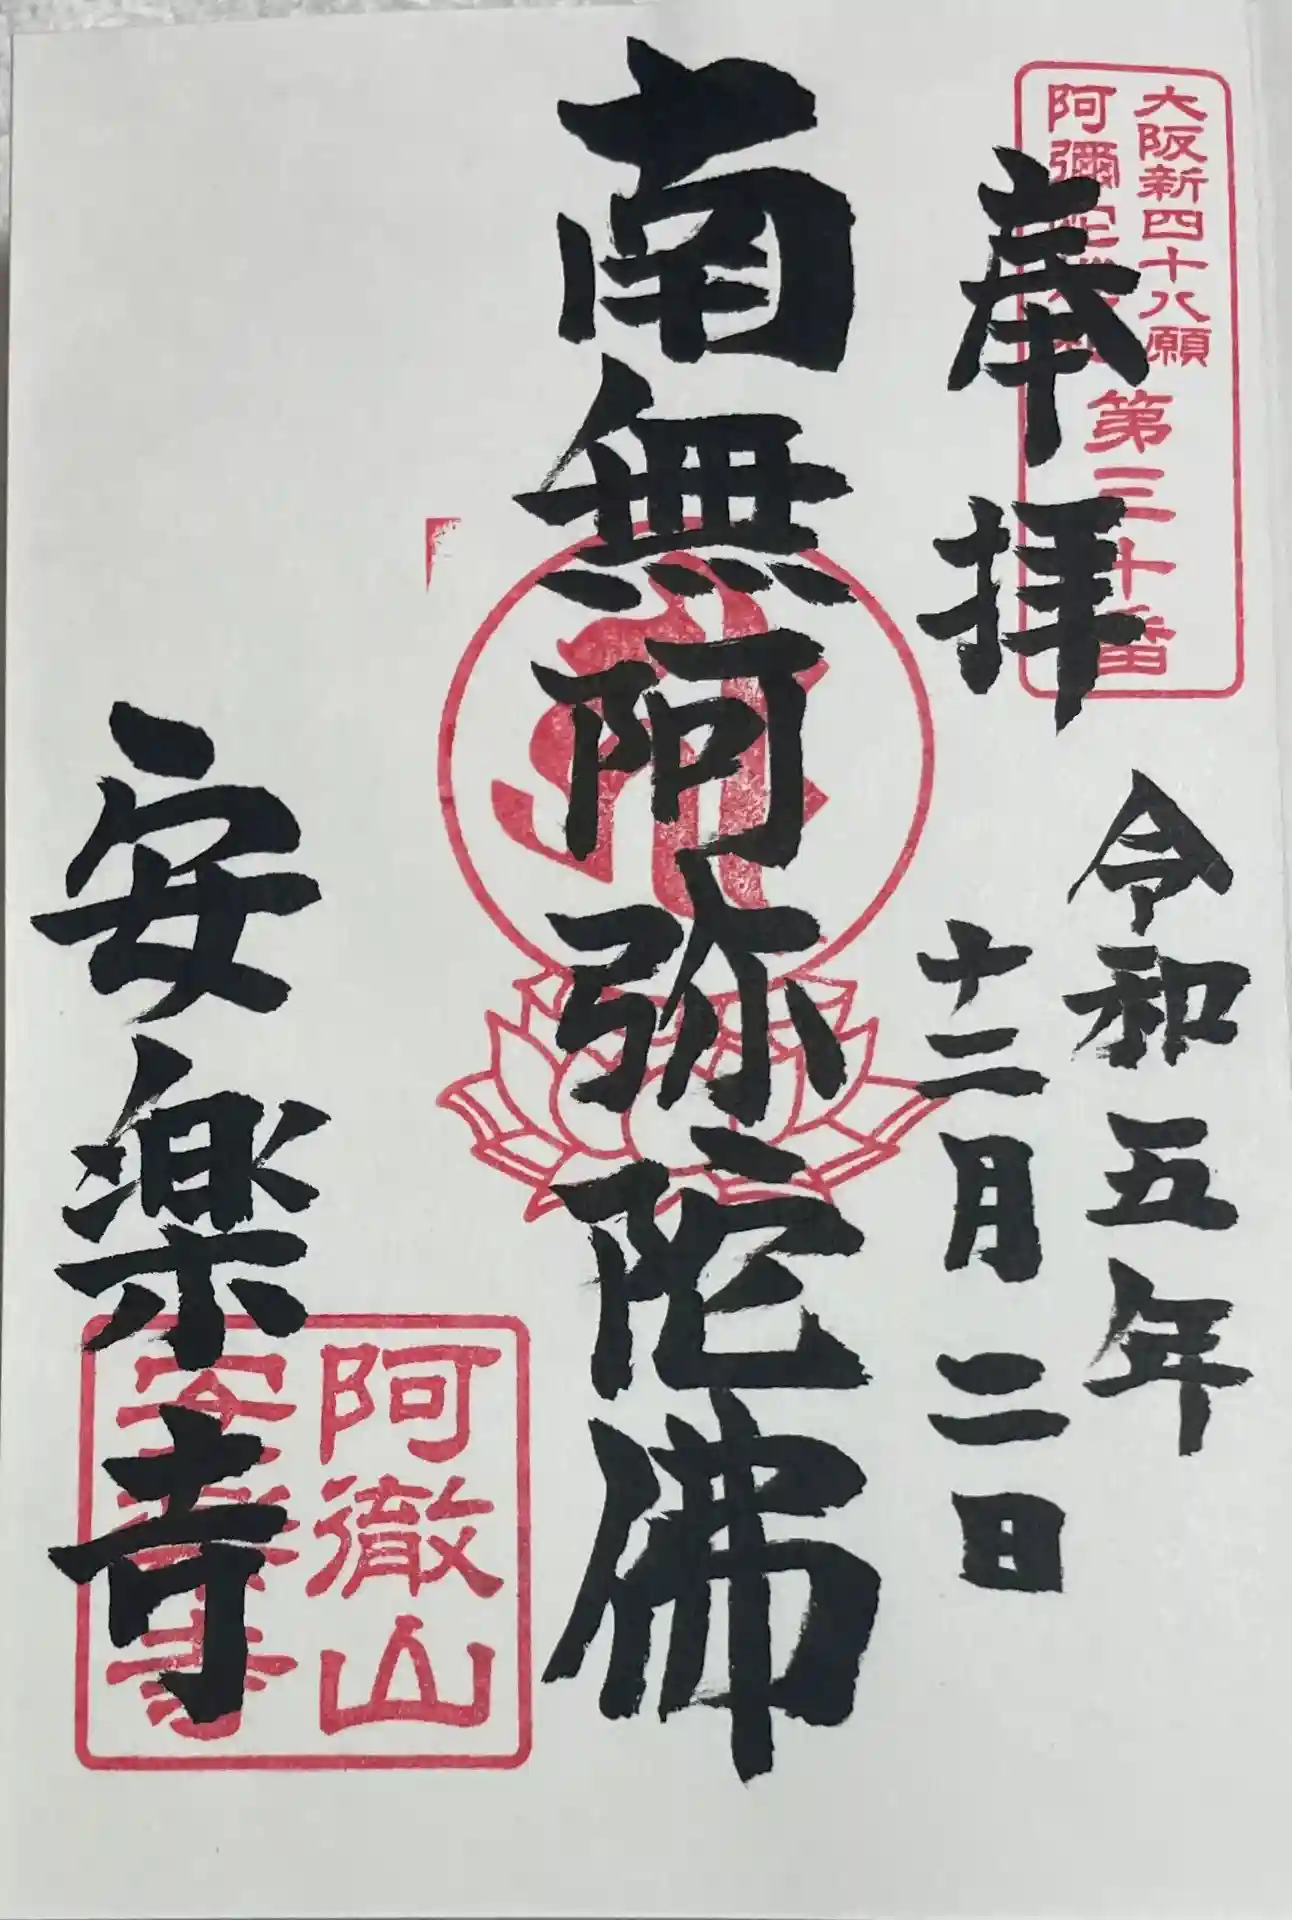 大阪新四十八願
阿彌陀
第三十番
奉拝
令和五年
十二月二日
南無阿弥陀佛
阿徹山
安楽寺